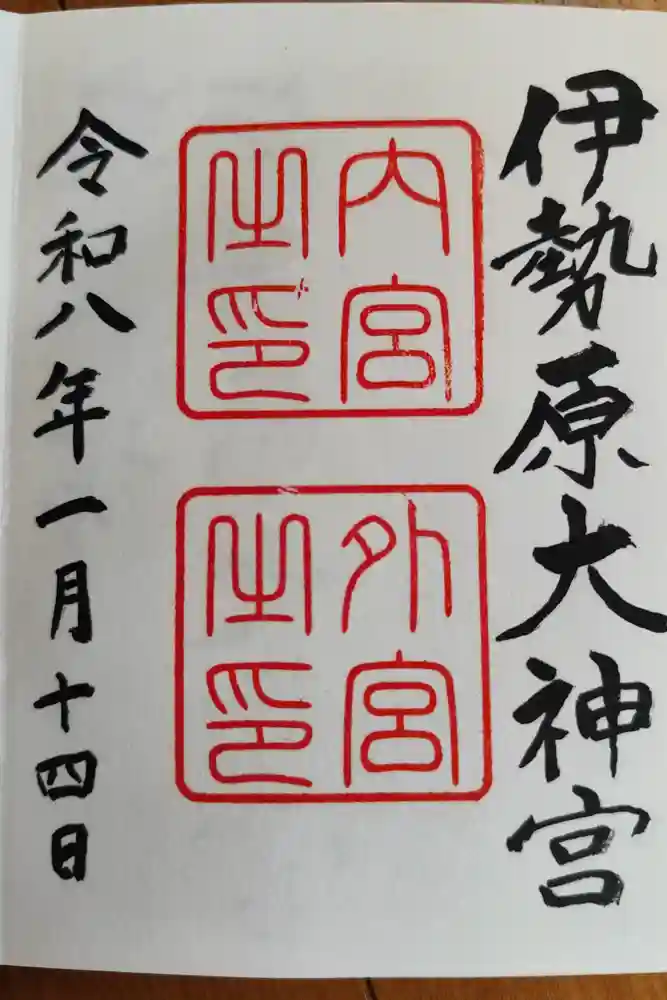 伊勢原大神宮
内宮
之印
外宮
之印
令和八年一月十四日